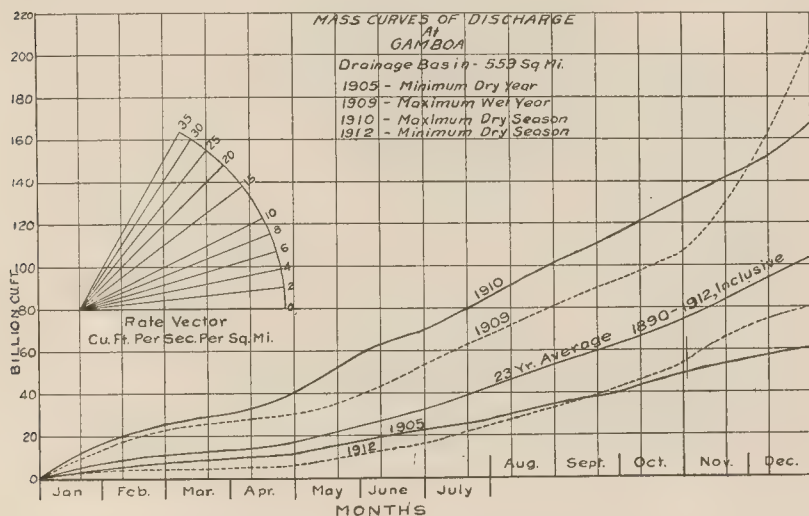 MASS CURVES OF DISCHARGE
At
GAMBOA
Drainage Basin - 559 Sq. Mi.
1905 - Minimum Dry Year
1909 - Maximum Wet Year
1910 - Maximum Dry Season
1912 - Minimum Dry Season
220
200
180
160
140
120
100
80
60
40
20
0
BILLION CU.FT.
35
30
25
20
15
10
8
6
4
2
0
Rate Vector
Cu. Ft. Per Sec. Per Sq. Mi.
1910
1909
23 Yr. Average 1890-1912, Inclusive
1905
1912
Jan Feb. Mar. Apr. May June July Aug. Sept. Oct. Nov. Dec.
MONTHS